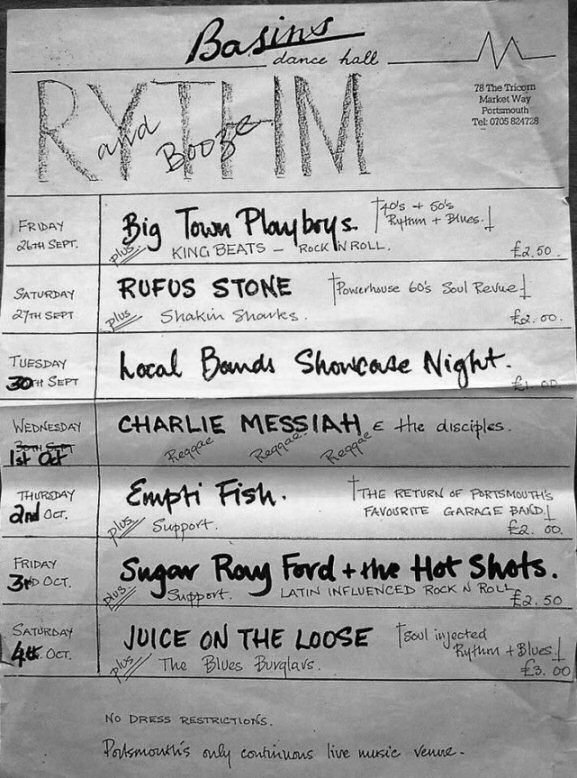 Basins
dance hall
78 The Tricorn
Market Way
Portsmouth
Tel: 0705 824728
RYTHM
and Booze
FRIDAY
26TH SEPT.
Big Town Playboys.
40's + 50's
Rythm + Blues.
plus
KING BEATS – ROCK N ROLL.
£2.50.
SATURDAY
27TH SEPT
RUFUS STONE
Powerhouse 60's Soul Revue
plus
Shakin Sharks.
£2.00.
TUESDAY
30TH SEPT
Local Bands Showcase Night.
£1.00
WEDNESDAY
30TH SEPT
1st Oct
CHARLIE MESSIAH & the disciples.
Reggae Reggae. Reggae
THURSDAY
2nd OCT.
Empti Fish.
THE RETURN OF PORTSMOUTH'S
FAVOURITE GARAGE BAND.
plus
Support.
£2.00.
FRIDAY
3RD OCT.
Sugar Ray Ford + the Hot Shots.
plus
Support.
LATIN INFLUENCED ROCK N ROLL
£2.50
SATURDAY
4th OCT.
JUICE ON THE LOOSE
Soul injected
Rythm + Blues
plus
The Blues Burglars.
£3.00
NO DRESS RESTRICTIONS.
Portsmouth's only continuous live music venue.